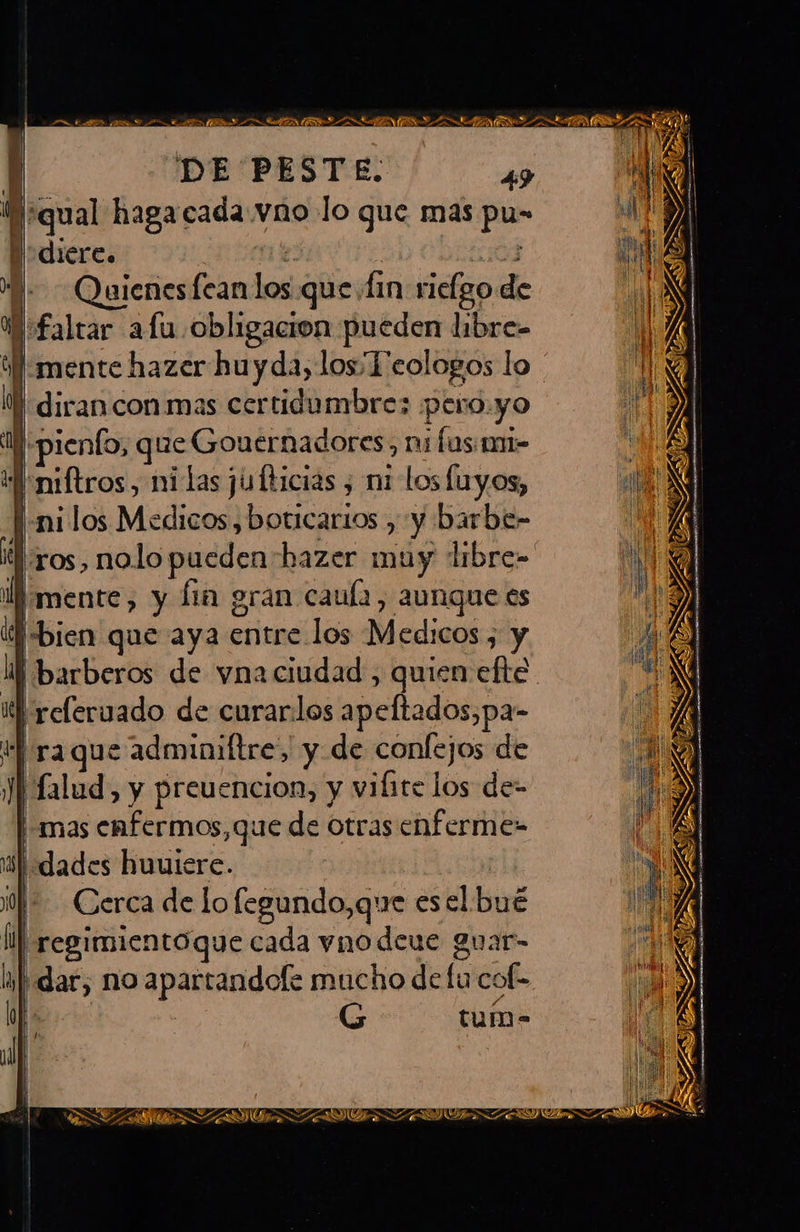 DE PESTE. 49
qual haga cada vno lo que mas pu-
diere.
Quienes ſean los que ſin rieſgo de
faltar a ſu obligacion pueden libre-
mente hazer huyda, los Teologos lo
diran con mas certidumbre: pero yo
pienſo, que Gouernadores, ni ſus mi-
niſtros, ni las juſticias, ni los ſuyos,
ni los Medicos, boticarios, y barbe-
ros, no lo pueden hazer muy libre-
mente, y ſin gran cauſa, aunque es
bien que aya entre los Medicos, y
barberos de vna ciudad, quien eſte
reſeruado de curar los apeſtados, pa-
ra que adminiſtre, y de conſejos de
ſalud, y preuencion, y viſite los de-
mas enfermos, que de otras enferme-
dades huuiere.
Cerca de lo ſegundo, que es el bué
regimiento que cada vno deue guar-
dar, no apartandoſe mucho de ſu coſ-
G tum-